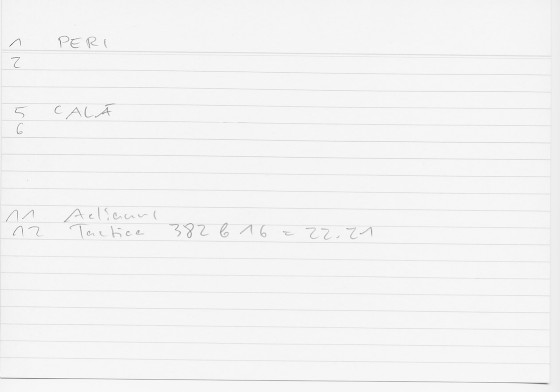 1 PERI
2
5 CALĂ
6
11 Acțiuni
12 Tactica 382 B 16 = 22.21